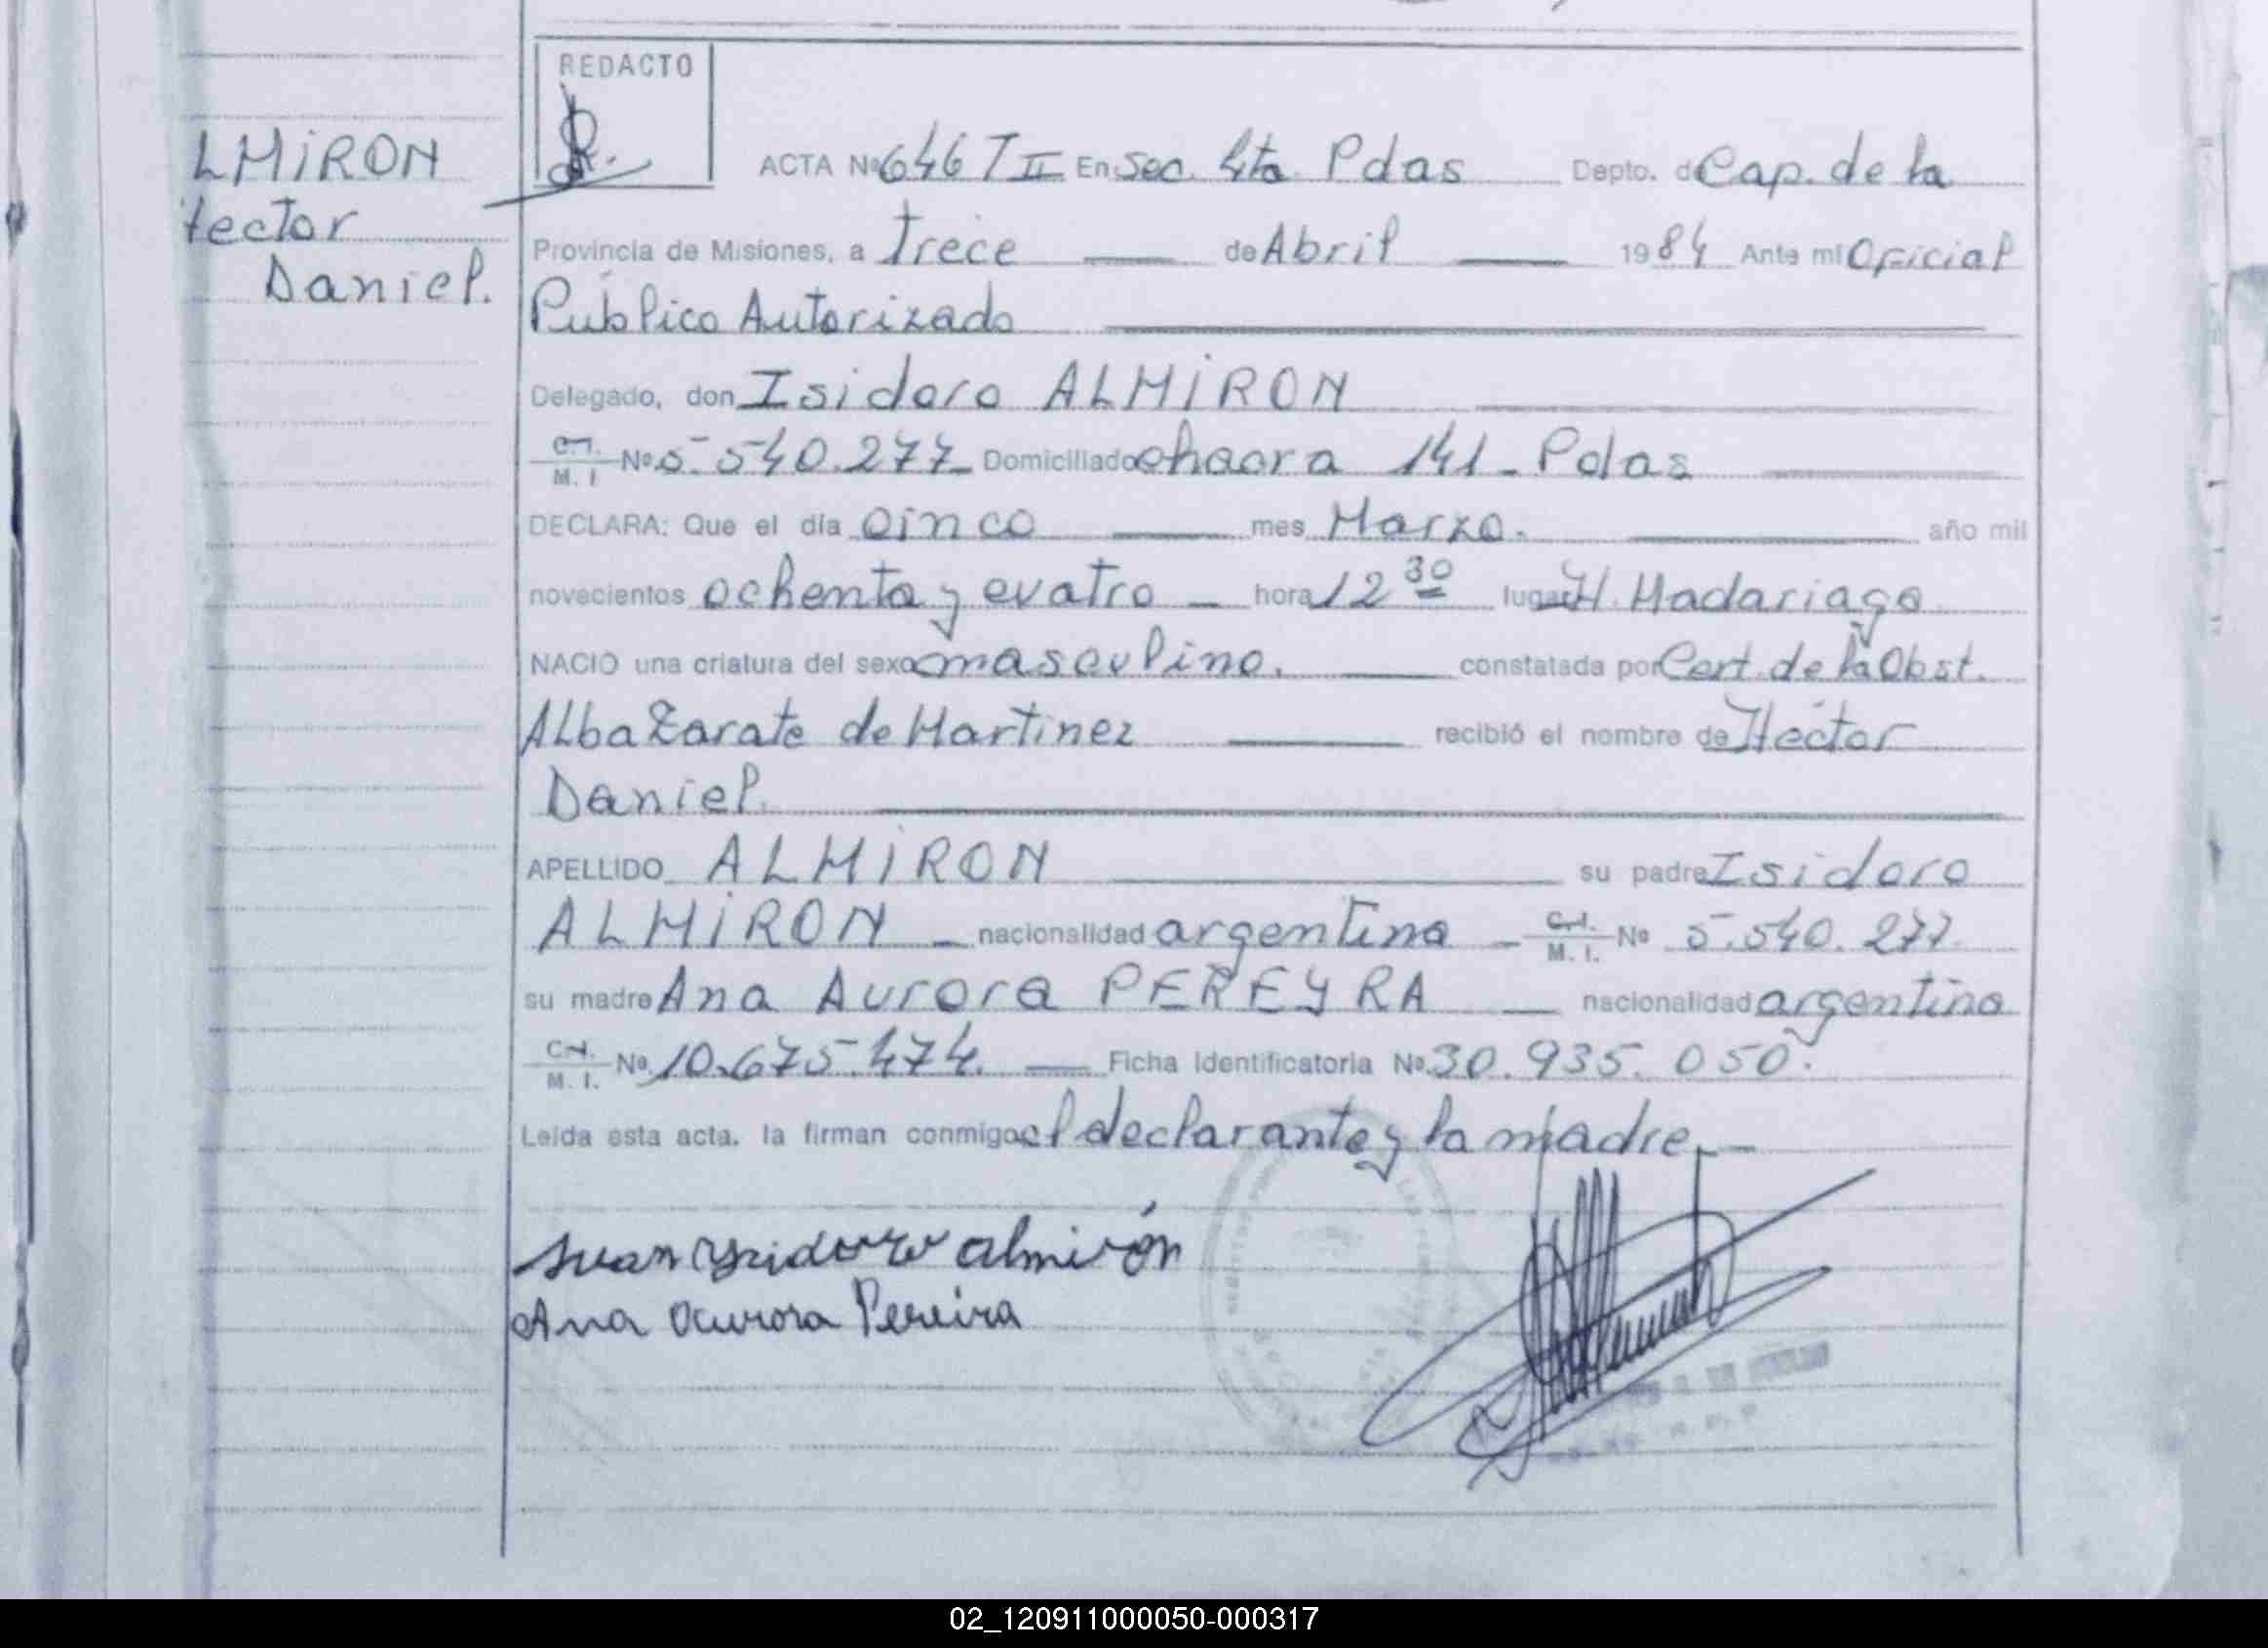 REDACTO
LMIRON
Hector
Daniel.
ACTA Nº 646 T II En Sec. 4ta Pdas Depto. d Cap. de la
Provincia de Misiones, a Trece de Abril 1984 Ante mi Oficial
Público Autorizado
Delegado, don Isidoro ALMIRON
C.I. M. I Nº 5.540.277 Domiciliado chacra 141 - Pdas
DECLARA: Que el día cinco mes Marzo. año mil
novecientos ochenta y cuatro hora 12 30 lugar H. Madariaga
NACIO una criatura del sexo masculino. constatada por Cert. de la Obst.
Alba Zarate de Martinez recibió el nombre de Héctor
Daniel.
APELLIDO ALMIRON su padre Isidoro
ALMIRON nacionalidad argentina C.I. M. I. Nº 5.540.277
su madre Ana Aurora PEREYRA nacionalidad argentina
C.I. M. I. Nº 10.675.474. Ficha Identificatoria Nº 30.935.050.
Leída esta acta. la firman conmigo el declarante y la madre.
Juan Ysidoro Almirón
Ana Aurora Pereira
02_120911000050-000317